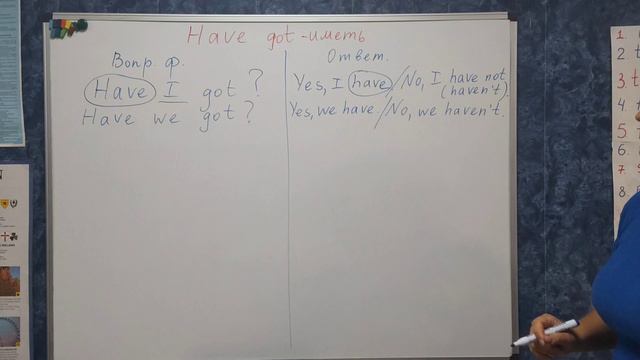 Have got - иметь
Вопр. ф.
Have I got ?
Have we got ?
Ответ.
Yes, I have/No, I have not
(haven't).
Yes, we have./No, we haven't.
1.
2. t
3. t
4.
5.
6.
7.
8.